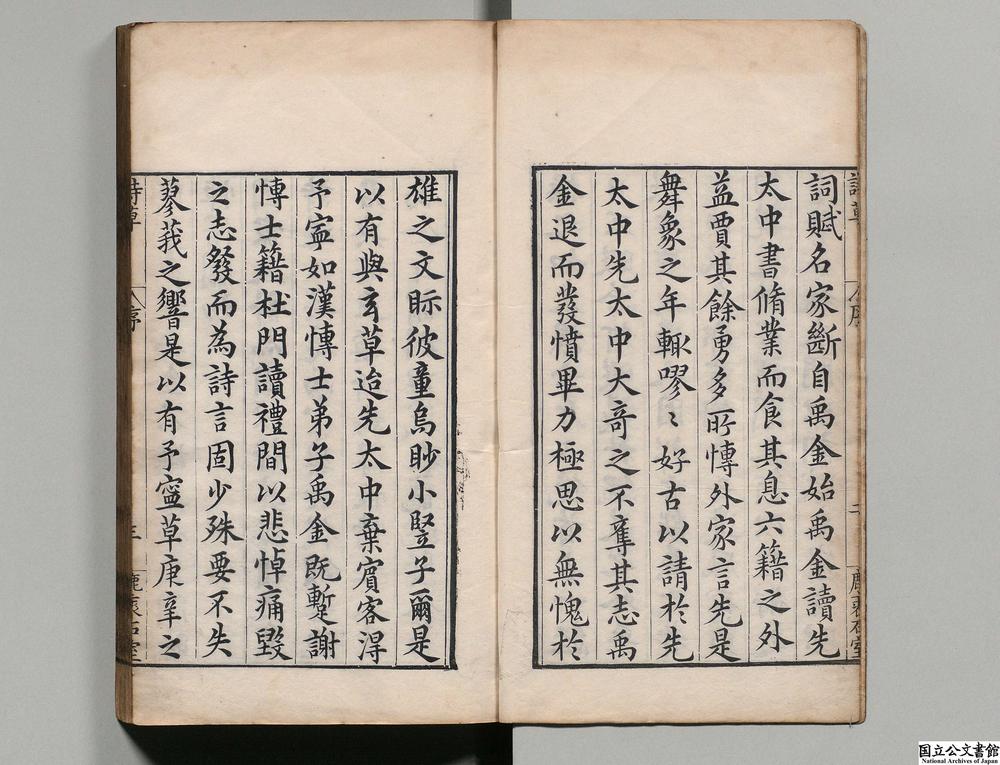 詞賦名家斷自禹金始禹金讀先
太中書脩業而食其息六籍之外
益賈其餘勇多所愽外家言先是
舞象之年輙嘐〻好古以請於先
太中先太中大奇之不奪其志禹
金退而發憤畢力極思以無愧於
雄之文眎彼童烏眇小竪子爾是
以有與玄草迨先太中棄賔客淂
予寧如漢愽士弟子禹金旣蹔謝
愽士籍杜門讀禮間以悲悼痛毀
之志發而為詩言固少殊要不失
蓼莪之響是以有予寧草庚辛之
詩草
序
三
鹿裘石室
国立公文書館
National Archives of Japan